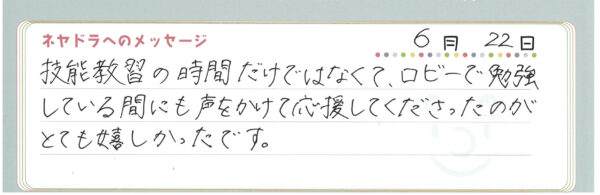 ネヤドラへのメッセージ 6月22日
技能教習の時間だけではなくて、ロビーで勉強
している間にも声をかけて応援してくださったのが
とても嬉しかったです。